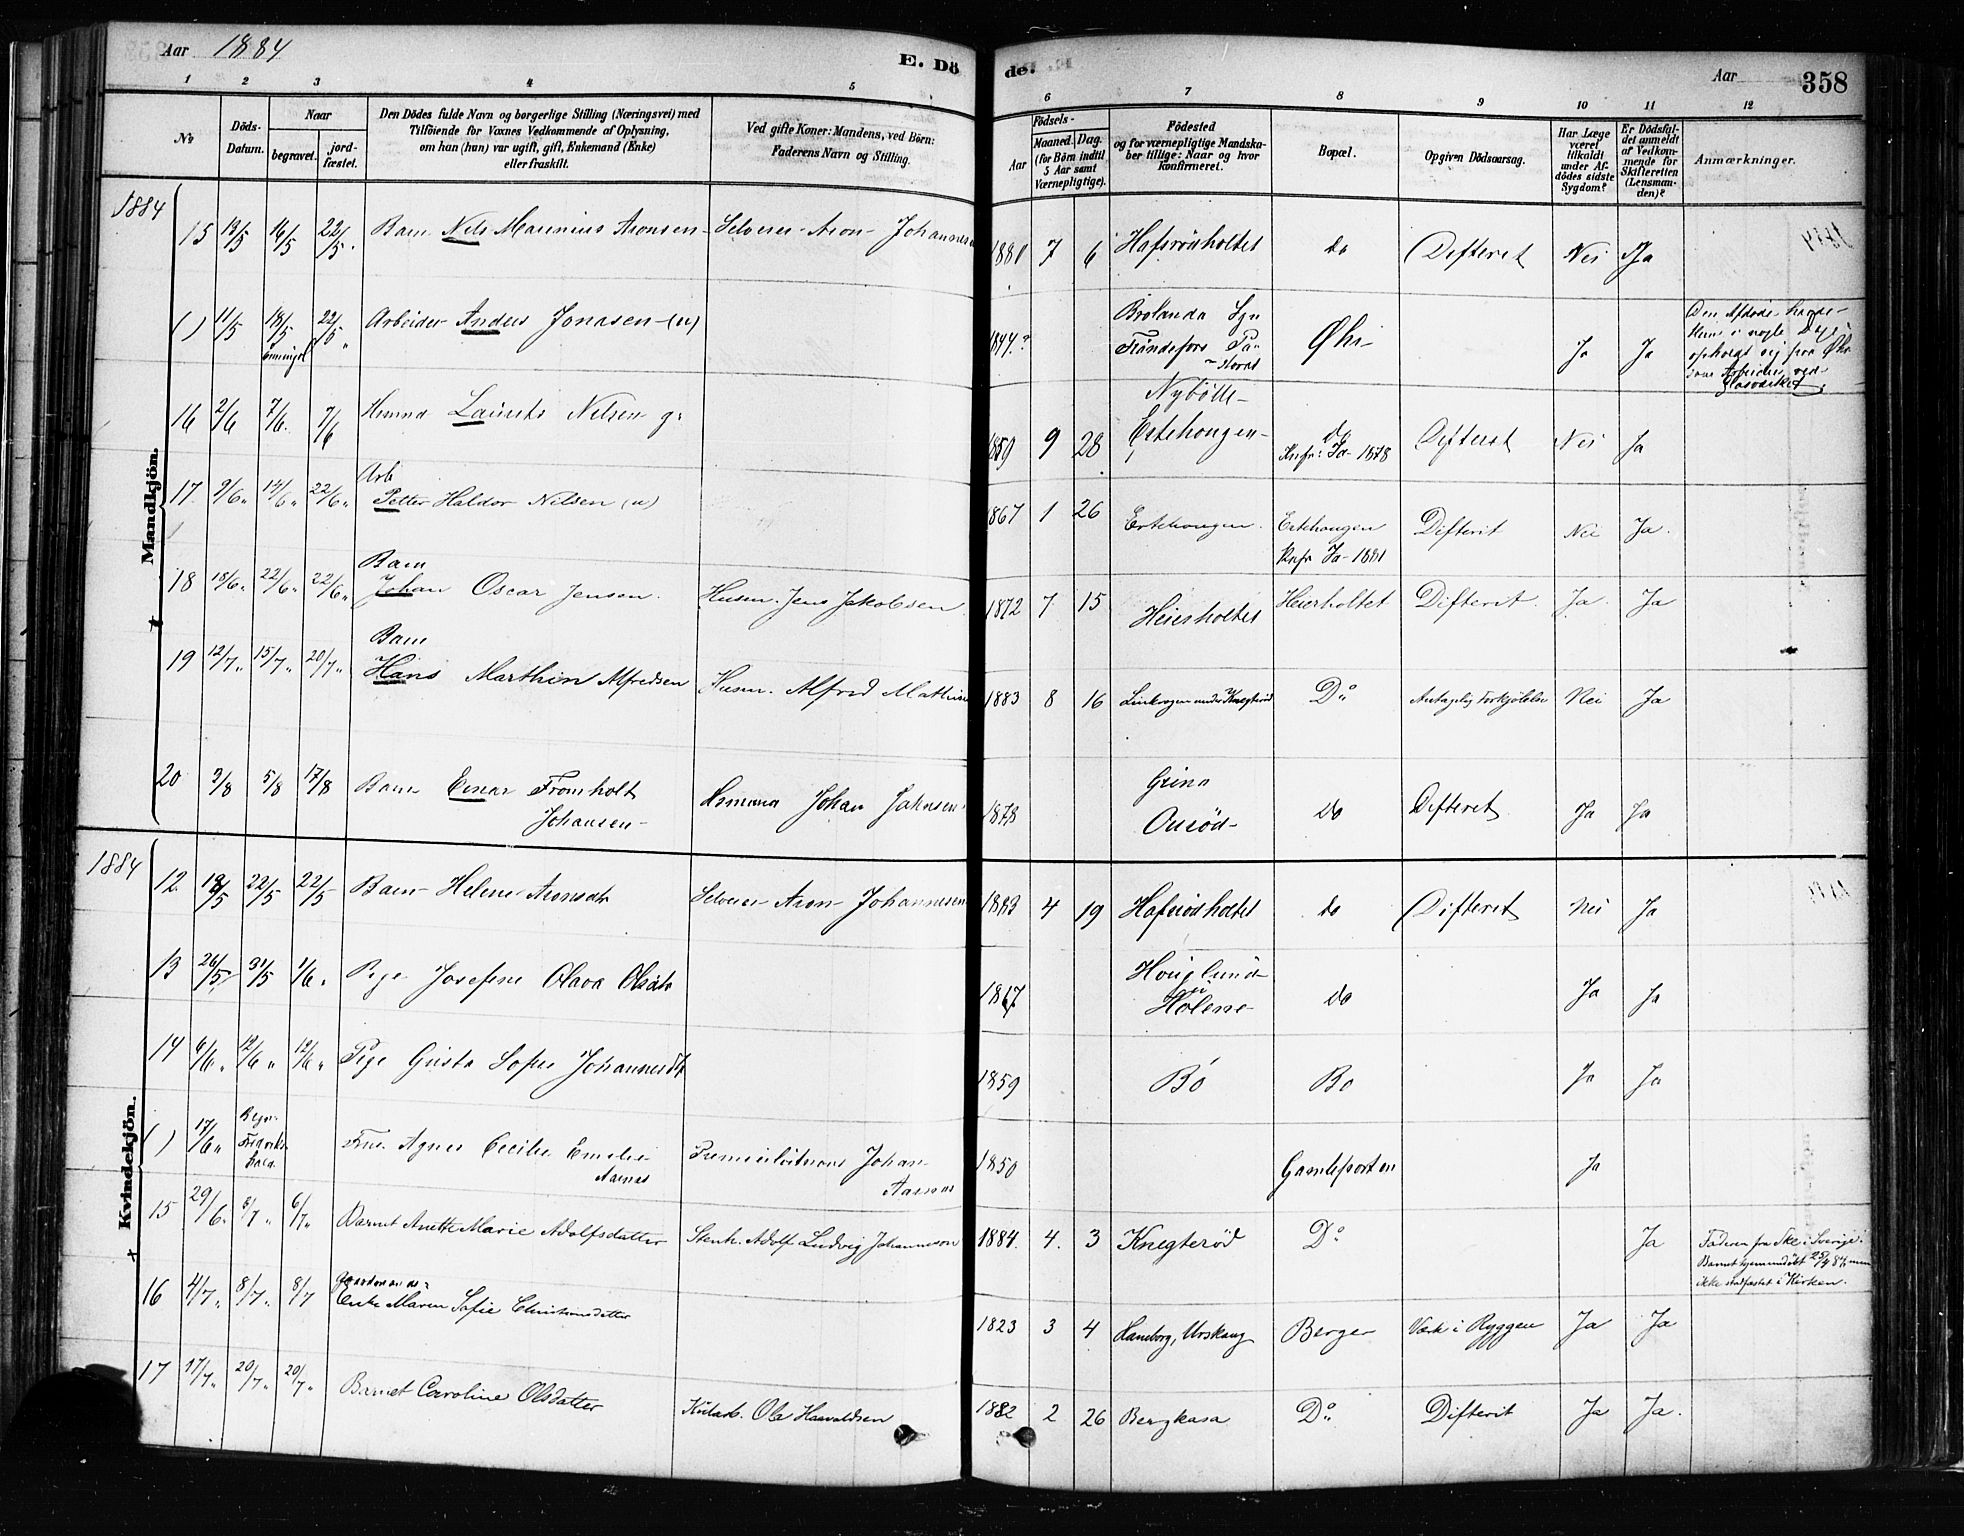 Aar 1884
E. Dö de.
Aar 358
1 2 3 4 5 6 7 8 9 10 11 12
No
Döds-Datum.
Naar
begravet.
jord-fæstet.
Den Dödes fulde Navn og borgerlige Stilling (Næringsvei) med
Tilföiende for Voxnes Vedkommende af Oplysning,
om han (hun) var ugift, gift, Enkemand (Enke)
eller fraskilt.
Ved gifte Koner: Mandens, ved Börn:
Faderens Navn og Stilling.
Födsels-
Aar
Maaned. Dag.
(for Börn indtil
5 Aar samt
Værnepligtige).
Födested
og for værnepligtige Mandska-
ber tillige: Naar og hvor
Konfirmeret.
Bopæl.
Opgiven Dödsaarsag.
Har Læge
været
tilkaldt
under Af-
dödes sidste
Sygdom?
Er Dödsfal-
det anmeldt
af Vedkom-
mende for
Skifteretten
(Lensman-
den)?
Anmærkninger.
1884
Mandkjön.
15 16/5 22/5 Barn Nils Marinius Aronsen Selveier Aron Johannesen 1880 7 6 Hafsrödholtet do Difterit Nei Ja
( ) 11/5 18/5 22/5 Arbeider Anders Jonasen (u) 1844? Brolanda Sgn Øhi Ja Ja
16 2/6 7/6 7/6 Husmd Laurits Nilsen g: 1859 9 28 Ertehougen do Knfr: Ja 1878 Difterit Nei Ja
17 9/6 14/6 22/6 Arb Petter Haldor Nilsen (u) 1867 1 26 Ertehougen Ertehougen Knfr Ja 1881 Difterit Nei Ja
18 18/6 22/6 22/6 Barn Johan Oscar Jensen Husm. Jens Jakobsen 1872 7 15 Heierholtet Heierholtet Difterit Ja Ja
19 12/7 15/7 20/7 Barn Hans Marthin Alfredsen Husm. Alfred Mathis 1883 8 16 under Knegteröd Do Antagelig Forkjölelse Nei Ja
20 3/8 5/8 17/8 Barn Einar Fromholt Johansen Johan Johnsen 1878 Grina Ouröd do Difterit Ja Ja
1884
Kvindekjön.
12 22/5 22/5 Barn Helene Aronsdtr Selveier Aron Johannesen 1883 4 19 Hafsrödholtet do Difterit Nei Ja
13 26/5 31/5 1/6 Pige Josefine Olava Olsdtr 1867 Houglund u Holene do Ja Ja
14 6/6 12/6 12/6 Pige Gusta Sofie Johannesdt 1859 Bö Bö Ja Ja
( ) 17/6 Frue Agnes Cecilie Emelie Aarnæs Premierlöitnant Johan Aarnæs 1850 Gamleporten Ja
15 29/6 6/7 6/7 Barnet Anette Marie Adolfsdatter Stenh. Adolf Ludvig Johanneson 1884 4 3 Knegteröd Do Ja Faderen fra Skee i Sverige. Barnet hjemmedöbt men ikke stadfæstet i Kirken.
16 4/7 8/7 8/7 Gaardmands: Enke Maren Sofie Christiansdatter 1823 3 4 Haneborg, Urskoug Berger Værk i Ryggen Ja Ja
17 17/7 20/7 20/7 Barnet Caroline Olsdatter Ole Haavaldsen 1882 2 26 Bergkasa Do Difterit Ja Ja